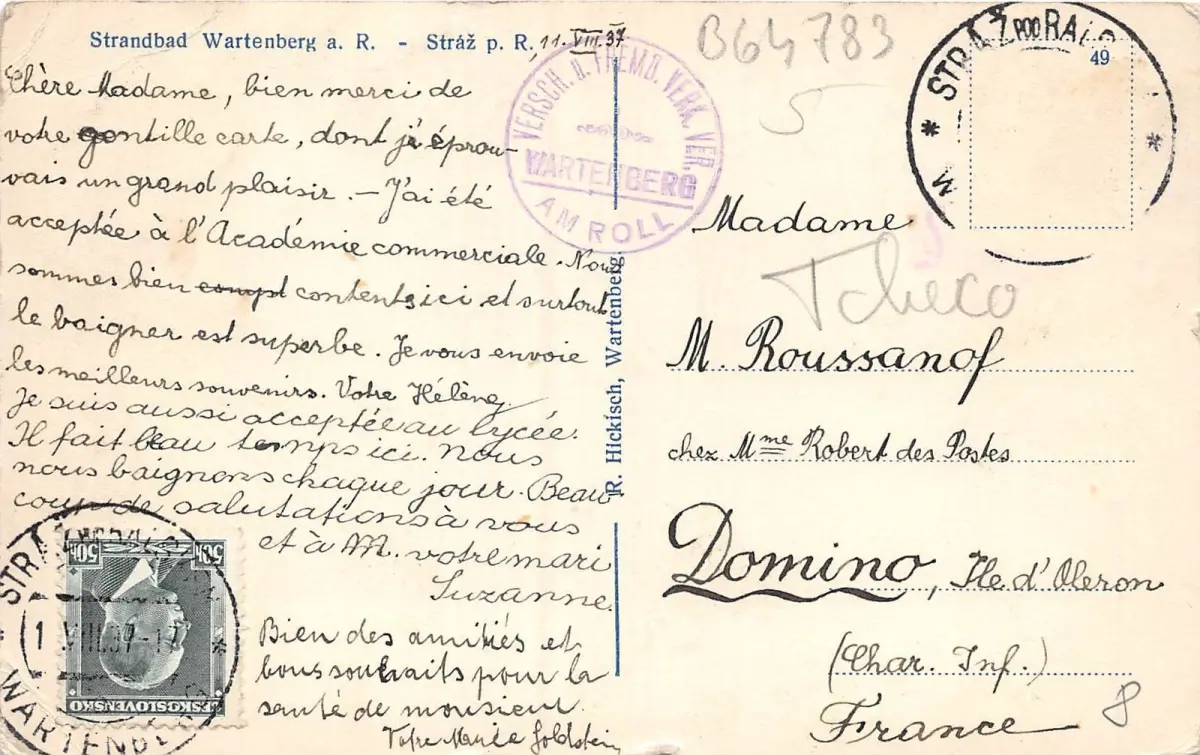 Strandbad Wartenberg a. R. - Stráž p. R.
11. VIII. 37
Chère Madame, bien merci de
votre gentille carte, dont j'éprou-
vais un grand plaisir. — J'ai été
acceptée à l'Académie commerciale. Nous
sommes bien compt contents ici et surtout
le baigner est superbe. Je vous envoie
les meilleurs souvenirs. Votre Hélène
Je suis aussi acceptée au lycée.
Il fait beau temps ici. Nous
nous baignons chaque jour. Beau
coup de salutations à vous
et à M. votre mari
Suzanne.
Bien des amitiés et
bons souhaits pour la
santé de monsieur.
Votre Marie Goldstein
VERSCH. U. FREMD. VERK. VER.
WARTENBERG
AM ROLL
R. Hickisch, Wartenberg.
B64783
5
STRÁŽ POD RALS
49
Madame
Tcheco
M. Roussanof
chez Mme Robert des Postes
Domino, Ile d'Oleron
(Char. Inf.)
France
8
50h 50h
ČESKOSLOVENSKO
STRÁŽ POD RALSKEM
1 VIII.37-17
WARTENBERG